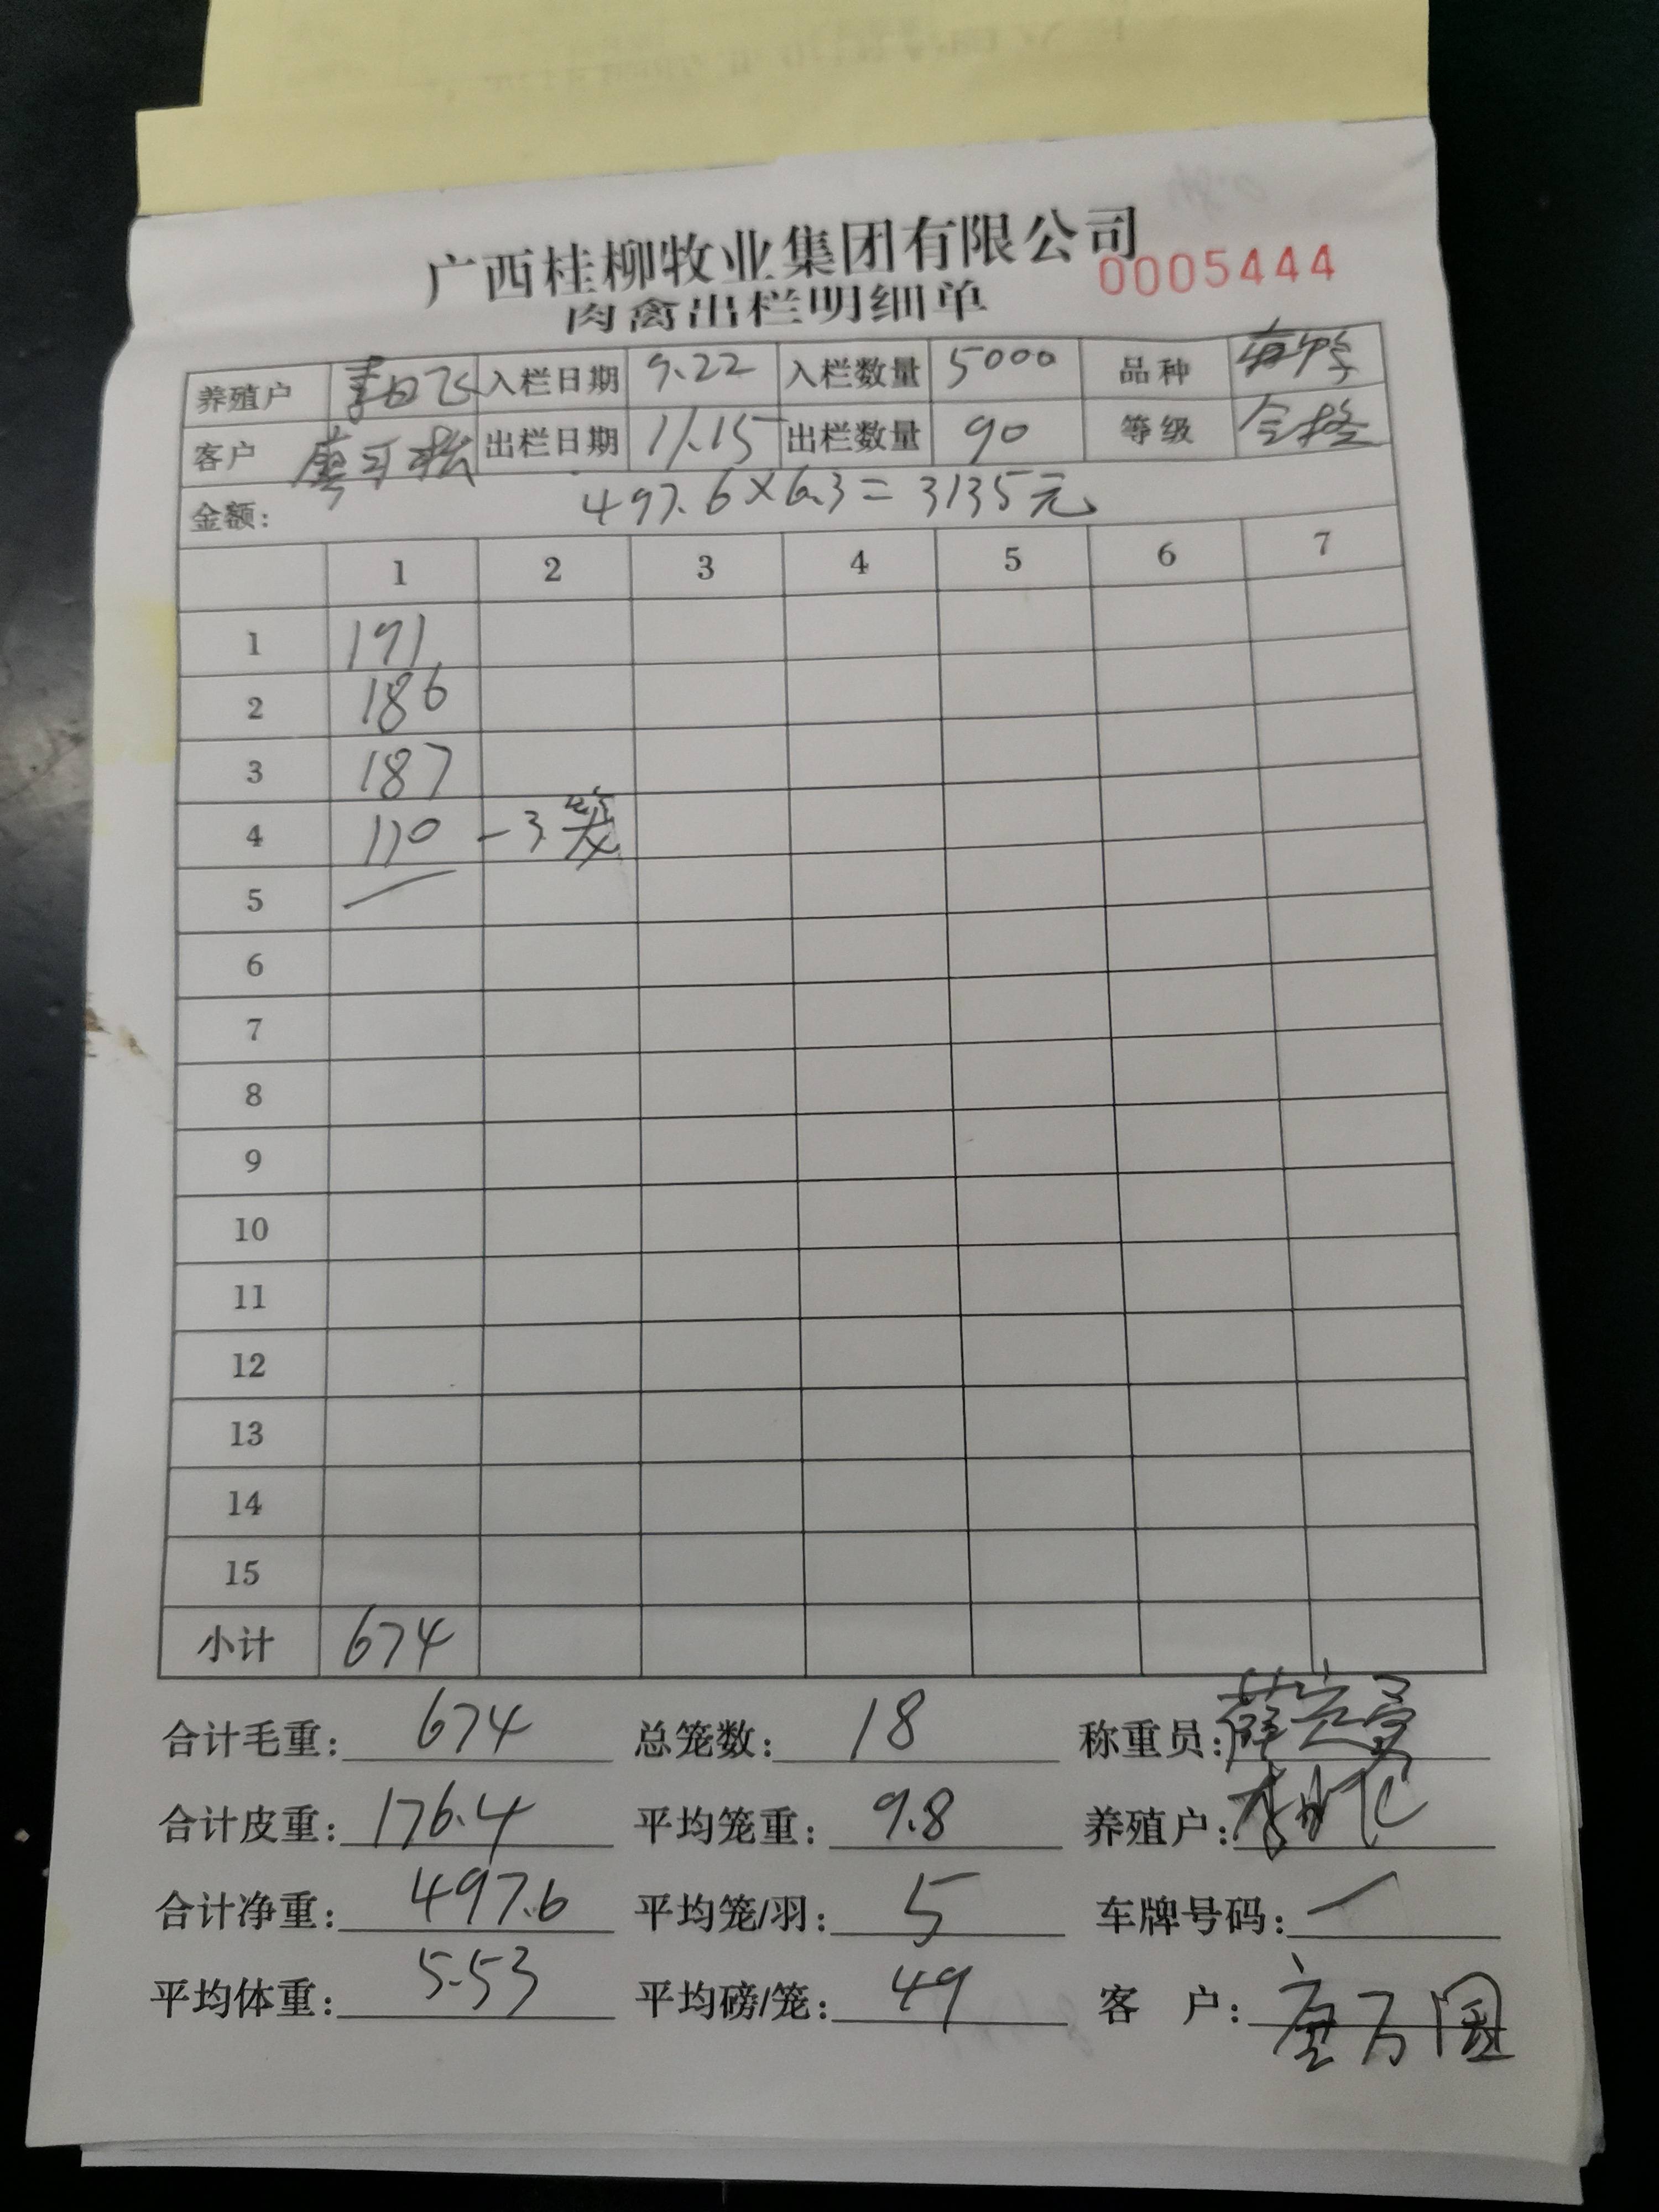 广西桂柳牧业集团有限公司
0005444
肉禽出栏明细单
养殖户 入栏日期 9.22 入栏数量 5000 品种
客户 出栏日期 11.15 出栏数量 90 等级 合格
金额: 497.6×6.3=3135元
1 2 3 4 5 6 7
1 191
2 186
3 187
4 110 -3笼
5
6
7
8
9
10
11
12
13
14
15
小计 674
合计毛重: 674 总笼数: 18 称重员:
合计皮重: 176.4 平均笼重: 9.8 养殖户:
合计净重: 497.6 平均笼/羽: 5 车牌号码:
平均体重: 5.53 平均磅/笼: 49 客 户: